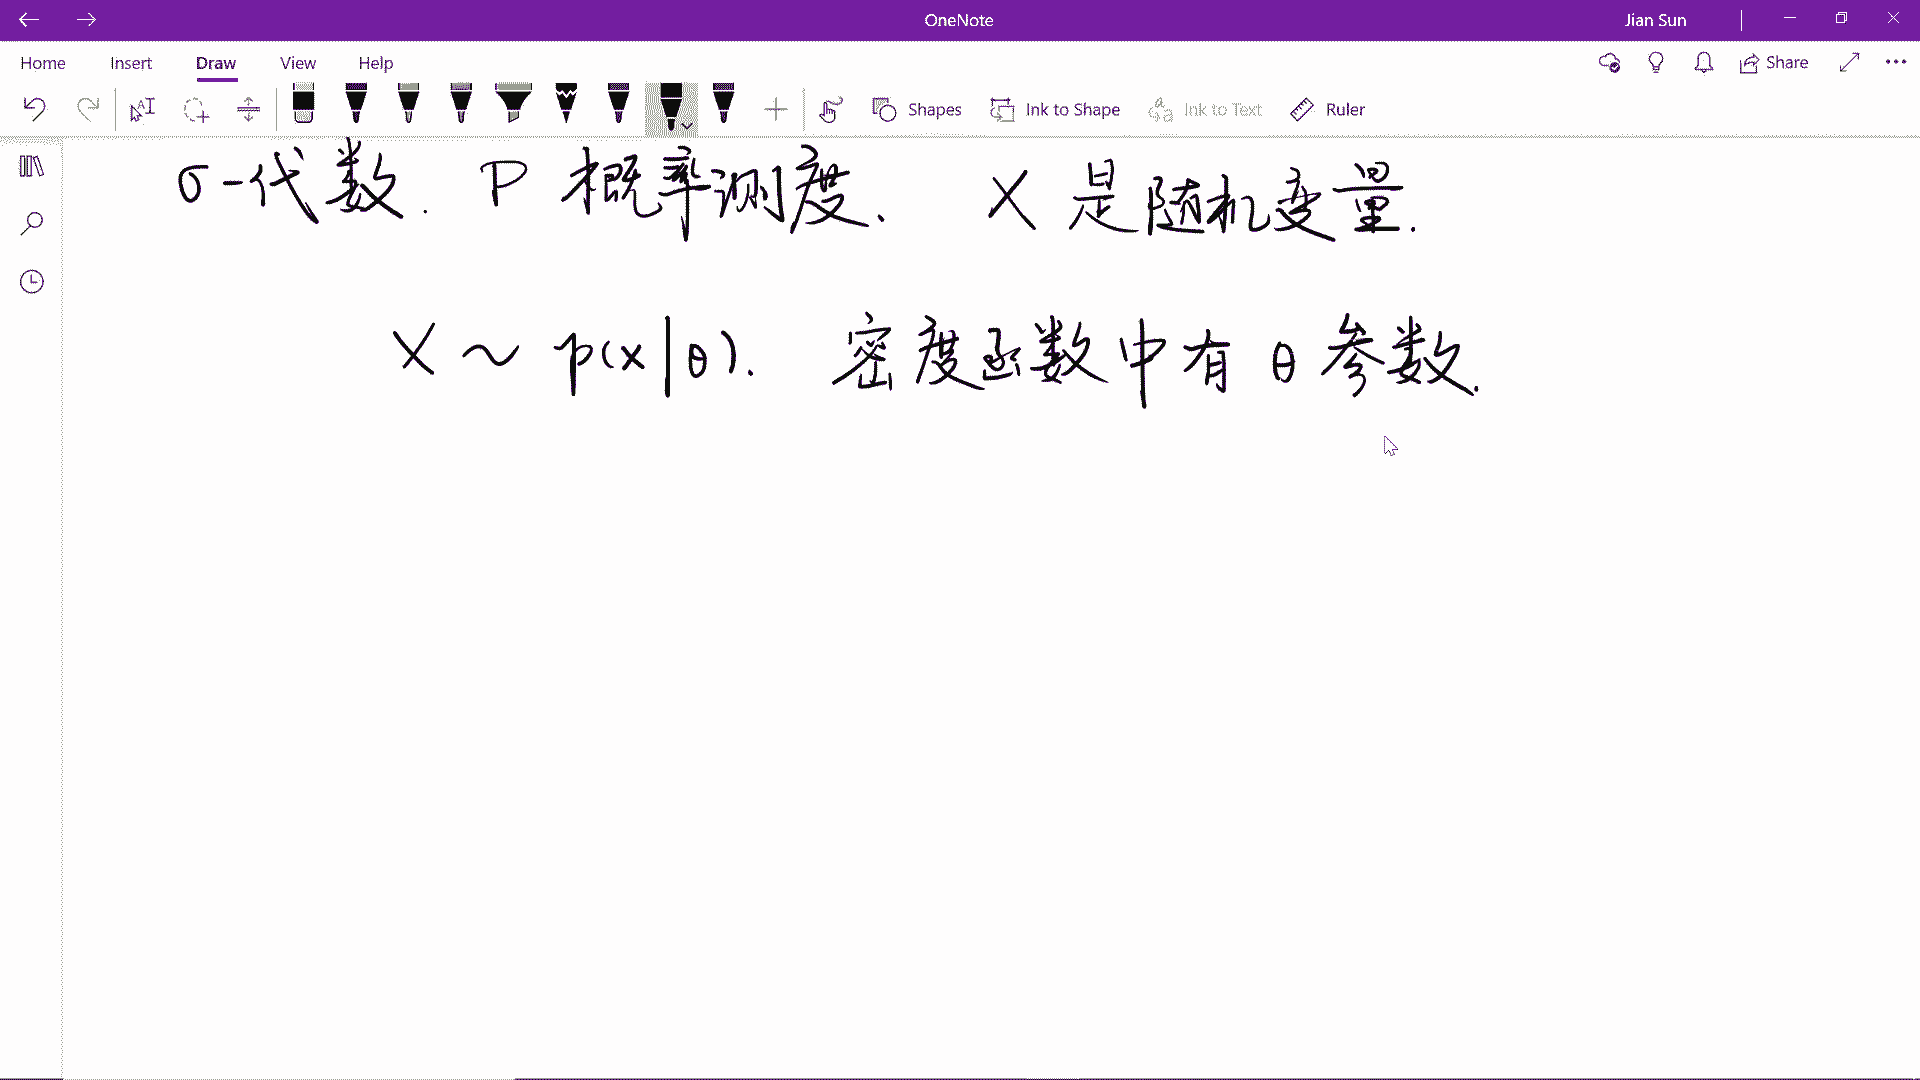 OneNote
Jian Sun
Home Insert Draw View Help
Share
Shapes Ink to Shape Ink to Text Ruler
σ-代数. P 概率测度. X 是随机变量.
X ~ p(x|θ). 密度函数中有 θ 参数.